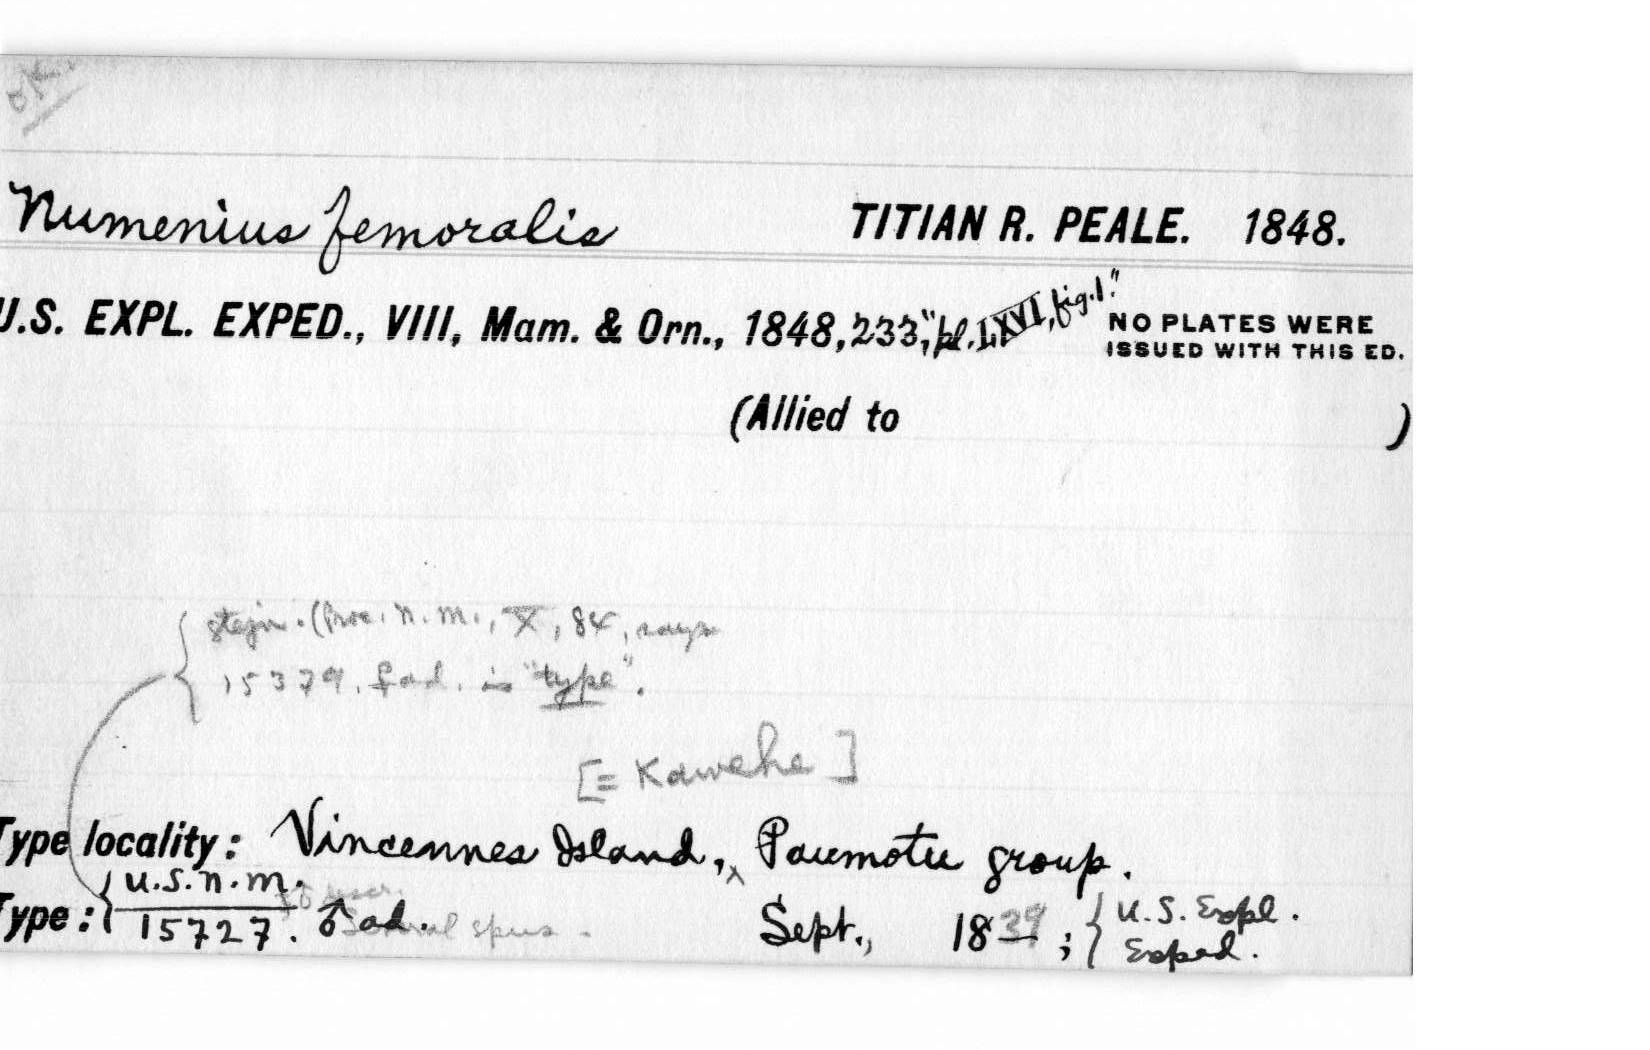 ok.
Numenius femoralis TITIAN R. PEALE. 1848.
U.S. EXPL. EXPED., VIII, Mam. & Orn., 1848, 233, "pl. LXVI, fig. 1." NO PLATES WERE
ISSUED WITH THIS ED.
(Allied to )
Stejn. (Proc. N.M., X, 84, says
15379, ♀ ad. is "type".
[= Kawehe]
Type locality: Vincennes Island, x Paumotu group.
Type: { U.S.N.M. descr.
15727. ♂ ad. Several spms. Sept., 1839; { U.S. Expl.
Exped.